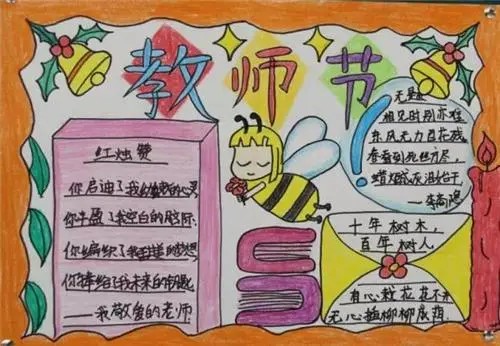 教师节
红烛赞
你启迪了我幼稚的心灵
你丰盈了我空白的脑际
你编织了我的梦想
你捧给了我未来的
——我敬爱的老师
无题
相见时别亦难
东风无力百花残
春蚕到死丝方尽,
蜡炬成灰泪始干
——李商隐
十年树木,
百年树人
有心栽花花不开
无心插柳柳成荫